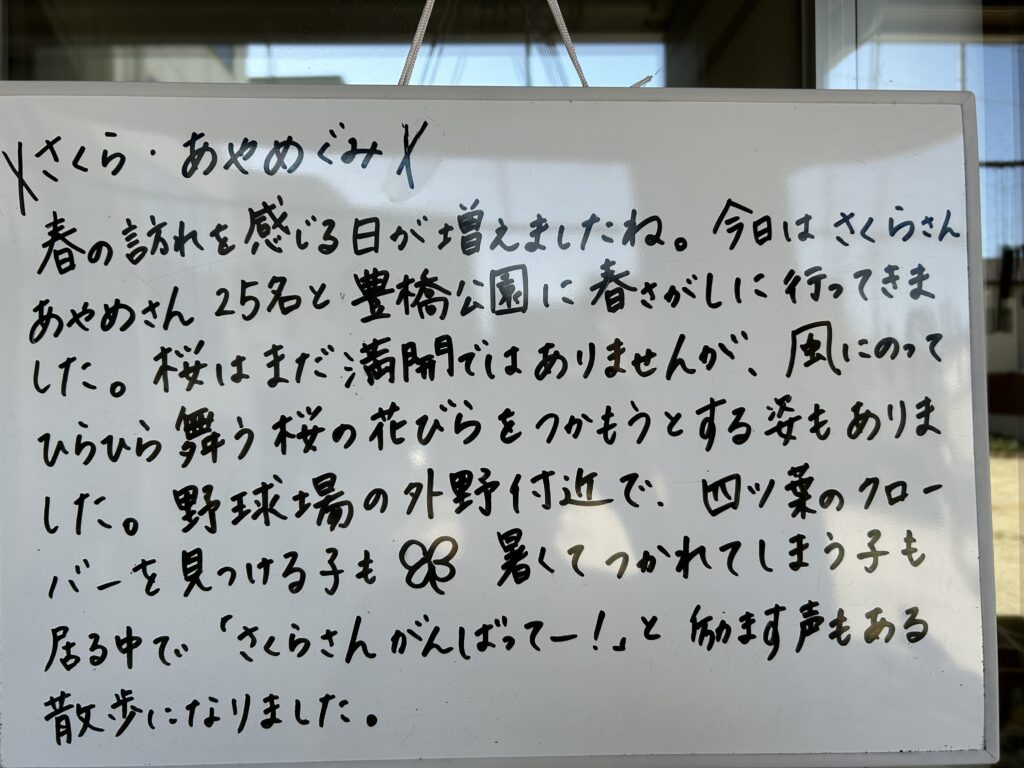 \さくら・あやめぐみ/
春の訪れを感じる日が増えましたね。今日はさくらさん
あやめさん25名と豊橋公園に春さがしに行ってきま
した。桜はまだ満開ではありませんが、風にのって
ひらひら舞う桜の花びらをつかもうとする姿もありま
した。野球場の外野付近で、四ツ葉のクロー
バーを見つける子も 暑くてつかれてしまう子も
居る中で「さくらさんがんばってー!」と励ます声もある
散歩になりました。